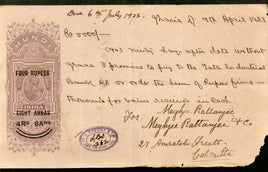 Due 6th July 1923.
4th April 1923
Rs 5000/-
HUNDI
Ninety days after date without
grace I promise to pay to the Indo Industrial
Bank Ld or order the sum of Rupees five
thousand for value received in cash.
FOUR RUPEES
INDIA
EIGHT ANNAS
4RS 8AS
For
Meghjee Rattanjee
Meghjee Rattanjee & Co.
27, Amratola Street
Calcutta